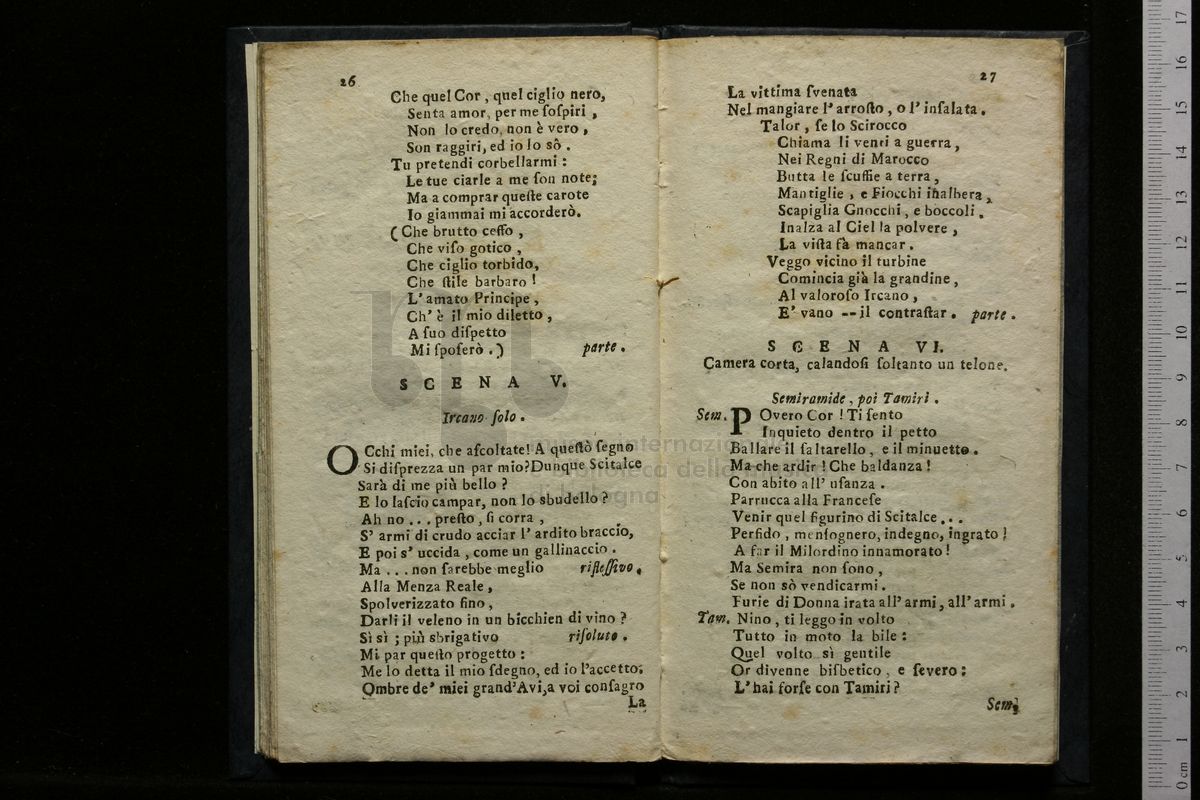 26
Che quel Cor, quel ciglio nero,
Senta amor, per me ſoſpiri,
Non lo credo, non è vero,
Son raggiri, ed io lo sò.
Tu pretendi corbellarmi:
Le tue ciarle a me ſon note;
Ma a comprar queſte carote
Io giammai mi accorderò.
(Che brutto ceffo,
Che viſo gotico,
Che ciglio torbido,
Che ſtile barbaro!
L' amato Principe,
Ch' è il mio diletto,
A ſuo diſpetto
Mi ſpoſerò.) parte.
SCENA V.
Ircano ſolo.
OCchi miei, che aſcoltate! A queſtò ſegno
Si diſprezza un par mio? Dunque Scitalce
Sarà di me più bello?
E lo laſcio campar, non lo sbudello?
Ah no... preſto, ſi corra,
S' armi di crudo acciar l' ardito braccio,
E poi s' uccida, come un gallinaccio.
Ma... non ſarebbe meglio rifleſſivo.
Alla Menza Reale,
Spolverizzato fino,
Darli il veleno in un bicchien di vino?
Sì sì; più sbrigativo riſoluto.
Mi par queſto progetto:
Me lo detta il mio ſdegno, ed io l'accetto;
Ombre de' miei grand'Avi, a voi conſagro
La
27
La vittima ſvenata
Nel mangiare l' arroſto, o l' inſalata.
Talor, ſe lo Scirocco
Chiama li venti a guerra,
Nei Regni di Marocco
Butta le ſcuffie a terra,
Mantiglie, e Fiocchi inalbera,
Scapiglia Gnocchi, e boccoli.
Inalza al Ciel la polvere,
La viſta fà mancar.
Veggo vicino il turbine
Comincia già la grandine,
Al valoroſo Ircano,
E' vano -- il contraſtar. parte.
SCENA VI.
Camera corta, calandoſi ſoltanto un telone.
Semiramide, poi Tamiri.
Sem. POvero Cor! Ti ſento
Inquieto dentro il petto
Ballare il ſaltarello, e il minuetto.
Ma che ardir! Che baldanza!
Con abito all' uſanza.
Parrucca alla Franceſe
Venir quel figurino di Scitalce...
Perfido, menſognero, indegno, ingrato!
A far il Milordino innamorato!
Ma Semira non ſono,
Se non sò vendicarmi.
Furie di Donna irata all' armi, all' armi.
Tam. Nino, ti leggo in volto
Tutto in moto la bile:
Quel volto sì gentile
Or divenne biſbetico, e ſevero:
L' hai forſe con Tamiri?
Sem.
museo internazionale
biblioteca della musica
di bologna
0 cm 1 2 3 4 5 6 7 8 9 10 11 12 13 14 15 16 17